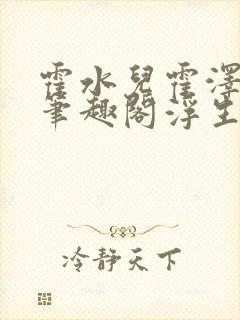 霍水兒霍澤
筆趣閣浮生
冷靜天下